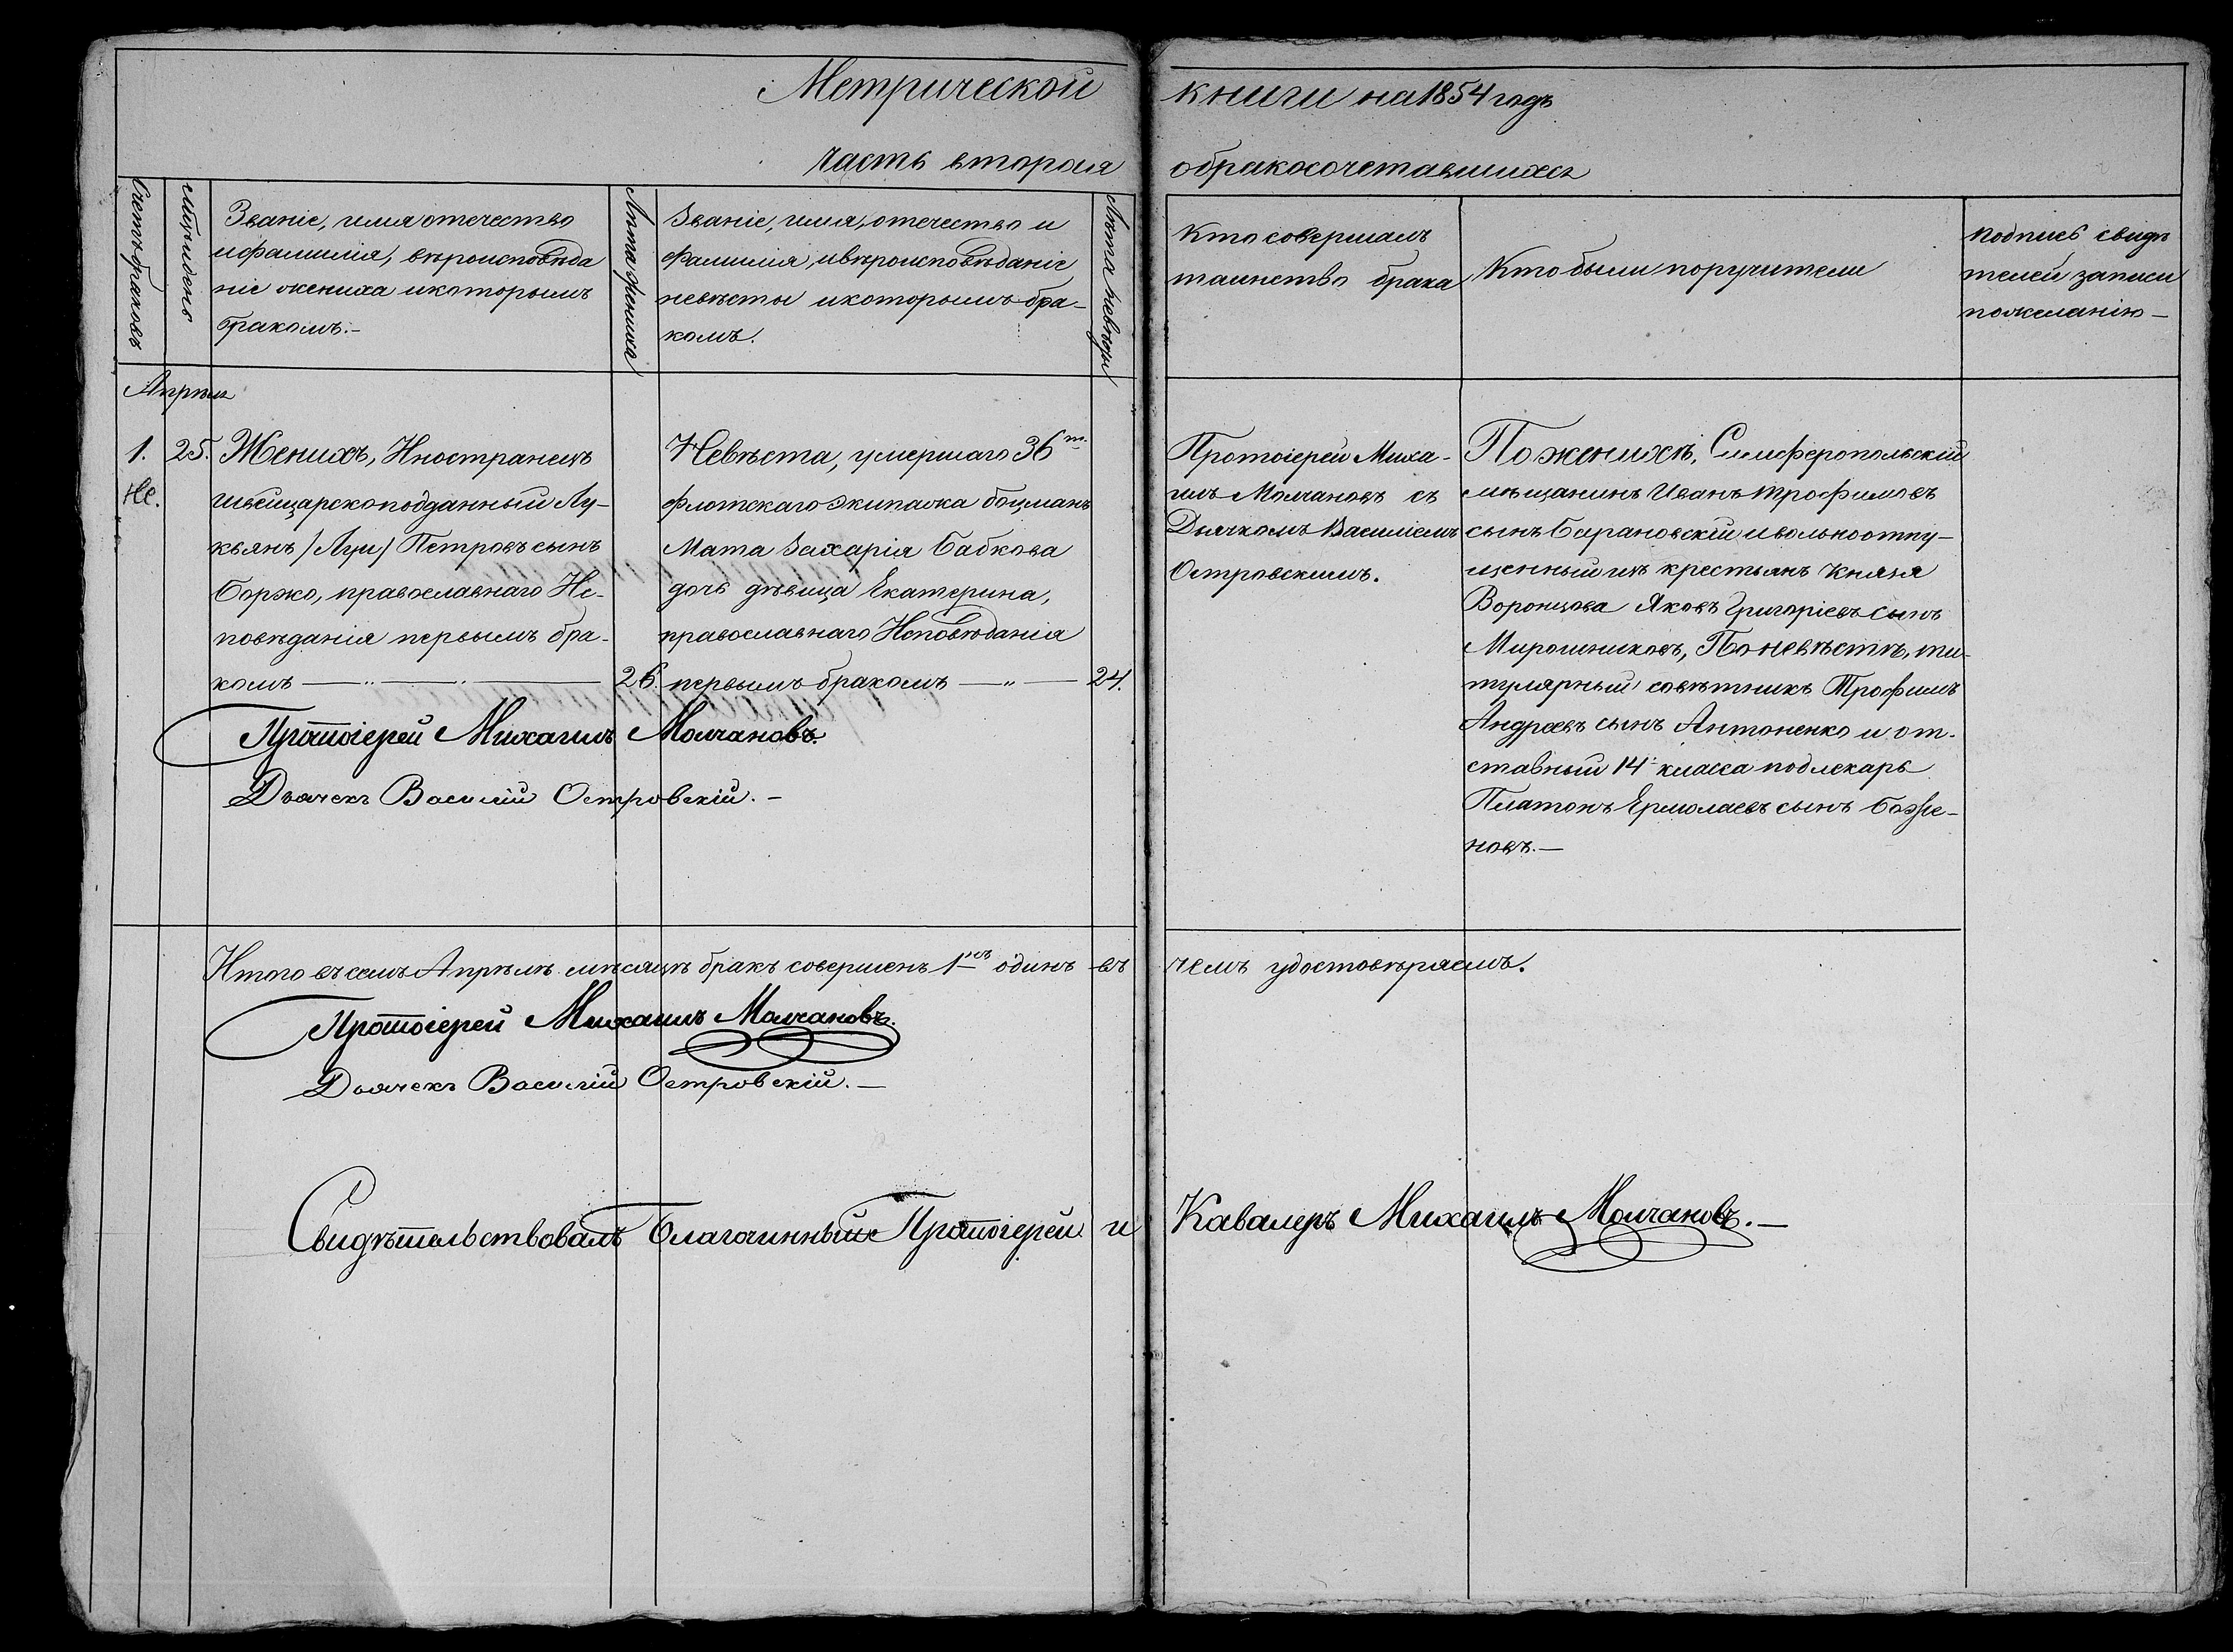 Метрической книги на 1854 годъ
часть вторая о бракосочетавшихся
Счетъ браковъ
Мѣсяцъ и день
Званіе, имя отечество
и фамилія, вѣроисповѣда
ніе жениха и которымъ
бракомъ.-
Лѣта жениха
Званіе, имя, отечество и
фамилія, и вѣроисповѣданіе
невѣсты и которымъ бра-
комъ.
Лѣта невѣсты
Кто совершалъ
таинство брака
Кто были поручители
Подпись свидѣ
телей записи
по желанію-
Апрѣля
1.
25.
Женихъ, Иностранецъ
швейцарскоподданный Лу-
кьянъ /Луи/ Петровъ сынъ
Боржо, православнаго Ис-
повѣданія первымъ бра-
комъ
26.
Невѣста, умершаго 36го
флотскаго экипажа боцманъ
Мата Захарія Бабкова
дочь дѣвица Екатерина,
православнаго Исповѣданія
первымъ бракомъ
24.
Протоіерей Миха-
илъ Молчановъ съ
Дьячкомъ Василіемъ
Островскимъ.
По женихѣ, Симферопольскій
мѣщанинъ Иванъ Трофимовъ
сынъ Барановскій и вольноотпу-
щенный изъ крестьянъ Князя
Воронцова Яковъ Григоріевъ сынъ
Мирошниковъ, По невѣстѣ, ти-
тулярный совѣтникъ Трофимъ
Андреевъ сынъ Антоненко и от-
ставный 14. класса подлекарь
Платонъ Ермолаевъ сынъ Баже-
новъ.-
Протоіерей Михаилъ Молчановъ.
Дьячекъ Василій Островскій.-
Итого въ семъ Апрѣлѣ мѣсяцѣ бракъ совершенъ 1 одинъ въ чемъ удостовѣряемъ.
Протоіерей Михаилъ Молчановъ.
Дьячекъ Василій Островскій.-
Свидѣтельствовалъ Благочинный Протоіерей и Кавалеръ Михаилъ Молчановъ.-